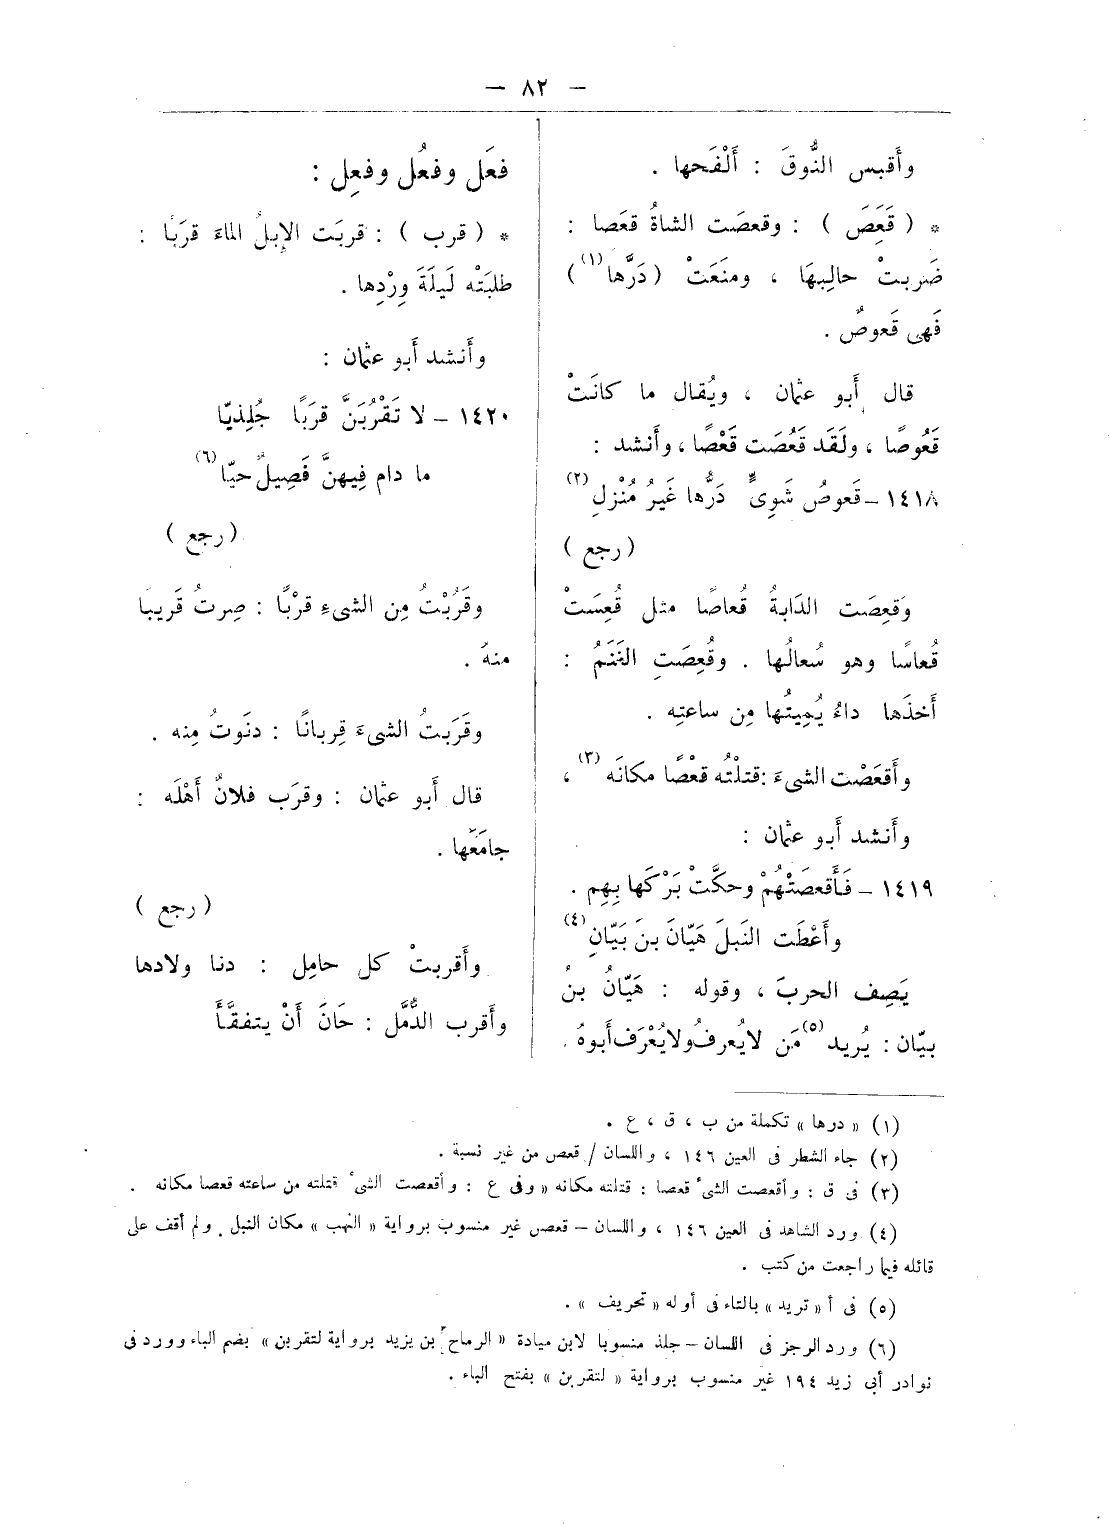 — ٨٢ —
وأَقبس النُّوقَ : أَلْقَحها .
* ( قَعَِصَ ) : وقعصَت الشاةُ قعَصا :
ضَربتْ حالِبهَا ، ومنَعَتْ (دَرَّها(١))
فَهى قَعوصٌ .
قال أَبو عثمان ، ويُقال ما كانَتْ
قَعُوصًا ، ولَقَد قَعُصَت قَعْصًا ، وأَنشد :
١٤١٨ – قَعوصُ شَوِىٌّ دَرُّها غَيرُ مُنْزلِ (٢)
( رجع )
وَقعِصَت الدَابةُ قُعاصًا مثل قُعِسَتْ
قُعاسًا وهو سُعالُها . وقُعِصَتِ الغَنَمُ :
أَخذَها داءُ يُمِيتُها مِن ساعتِه .
وأَقعَصْت الشىءَ : قتلْتُه قعْصًا مكانَه (٣) ،
وأَنشد أَبو عثمان :
١٤١٩ – فَأَقعصَتْهُمْ وحكَّتْ بَرْكَها بِهِم .
وأَعْطَت النَبلَ هَيَّانَ بنَ بَيَّانِ (٤)
يَصِف الحربَ ، وقوله : هَيَّانُ بنُ
بيّان : يُريد (٥) مَن لا يُعرفُ ولا يُعْرَف أَبوهُ .
فعَل وفعُل وفعِل :
* ( قرب ) : قربَت الإِبلُ الماءَ قرَبًا :
طلبَتْه لَيلَةَ وِرْدِها .
وأَنشد أَبو عثمان :
١٤٢٠ – لا تَقْرُبَنَّ قرَبًا جُلِذيّا
ما دام فِيهنَّ فَصِيلٌ حيّا (٦)
( رجع )
وقَرُبْتُ مِن الشىءِ قرْبًا : صِرتُ قَريبا
منهُ .
وقَرَبتُ الشىءَ قِربانًا : دنَوتُ مِنه .
قال أَبو عثمان : وقرَب فلانٌ أَهْلَه :
جامَعَها .
( رجع )
وأَقربتْ كل حامِل : دنا ولادها
وأقرب الدُّمَّل : حَانَ أَنْ يتفقَّأَ
(١) « درها » تكملة من ب ، ق ، ع .
(٢) جاء الشطر فى العين ١٤٦ ، واللسان / قعص من غير نسبة .
(٣) فى ق : وأقعصت الشىء قعصا : قتلته مكانه « وفى ع : وأقعصت الشىء قتلته من ساعته قعصا مكانه .
(٤) ورد الشاهد فى العين ١٤٦ ، واللسان – قعص غير منسوب برواية « النهب » مكان النبل . ولم أقف على
قائله فيما راجعت من كتب .
(٥) فى أ « تريد » بالتاء فى أوله « تحريف » .
(٦) ورد الرجز فى اللسان – جلذ منسوبا لابن ميادة « الرماح بن يزيد برواية لتقربن » بضم الباء وورد فى
نوادر أبى زيد ١٩٤ غير منسوب برواية « لتقربن » بفتح الباء .